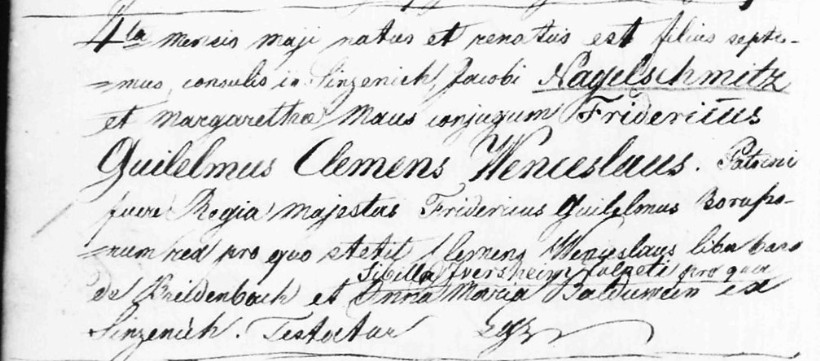 4ta mensis maji natus et renatus est filius septi-
mus, consulis in Sinzenich, Jacobi Nagelschmitz
et Margaretha Maus conjugum Fridericus
Guilelmus Clemens Wenceslaus. Patrini
fuere Regia Majestas Fridericus Guilelmus Borusso-
rum rex pro quo stetit Clemens Wenceslaus liber baro
Sibilla Iversheim pro qua
de et Anna Maria Balduwein ex
Sinzenich. Testatur